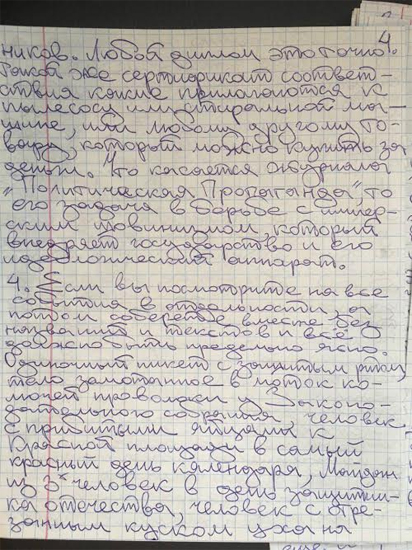 4.
ников. Любой диплом это точно
такой же сертификат соответ-
ствия какие прилагаются к
пылесосу или стиральной ма-
шине, или любому другому то-
вару, который можно купить за
деньги. Что касается журнала
"Политическая Пропаганда", то
его задача в борьбе с импер-
ским шовинизмом, который
внедряет государство и его
идеологический аппарат.
4. Если вы посмотрите на все
события в отдельности, а
потом соберете вместе без
названий и текстов и всё
должно быть предельно ясно.
Одиночный пикет с зашитым ртом,
тело замотанное в моток ко-
лючей проволоки у Законо-
дательного собрания, человек
с прибитыми яйцами к
Красной площади в самый
красный день календаря, Майдан
из 5 человек в день защитни-
ка отечества, человек с отре-
занным куском уха на